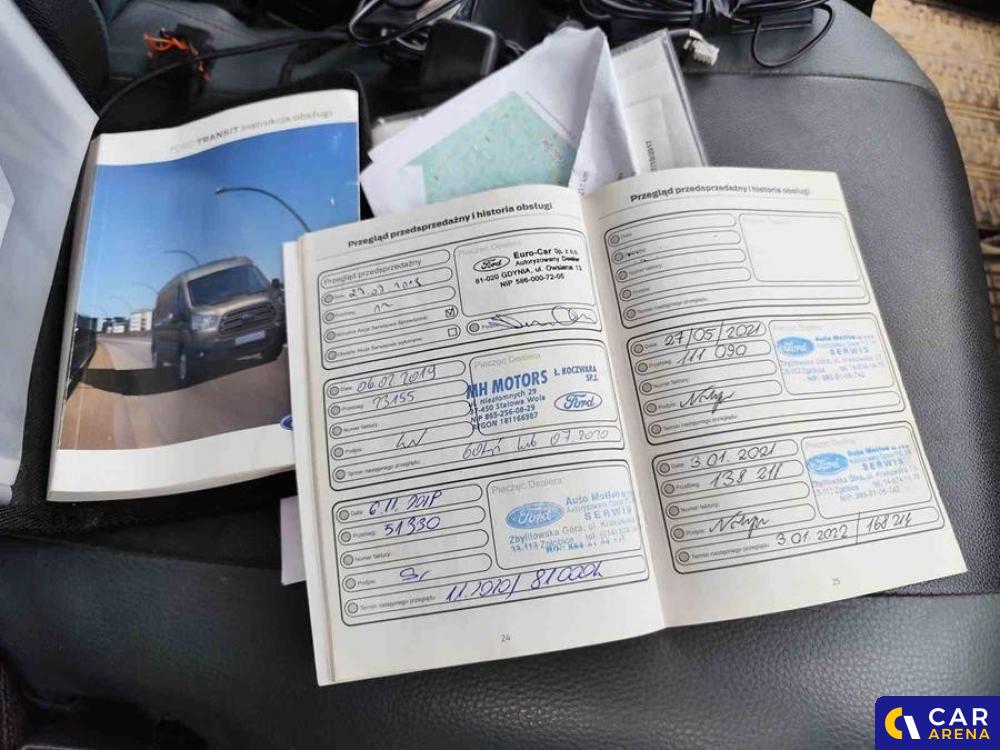 FORD TRANSIT Instrukcja obsługi
Przegląd przedsprzedażny i historia obsługi
Przegląd przedsprzedażny
Data:
Przebieg:
Pieczęć Dealera
Ford
Euro-Car Sp. z o.o.
Autoryzowany Dealer
81-020 GDYNIA, ul. Owsiana 13
NIP 586-000-72-05
Data: 06.07.2019
Przebieg: 23155
Numer faktury:
Podpis:
Termin następnego przeglądu: 07.2020
Pieczęć Dealera
MH MOTORS Ł. KOCZWARA
SP.J.
ul. Niezłomnych 29
37-450 Stalowa Wola
NIP 865-256-08-29
REGON 181166987
Ford
Data: 6.11.2019
Przebieg: 51330
Numer faktury:
Podpis:
Termin następnego przeglądu: 11.2020/ 81000k
Pieczęć Dealera
Ford
Auto Motive
SERWIS
Zbylitowska Góra, ul. Krakowska
33-113 Zgłobice
24
Przegląd przedsprzedażny i historia obsługi
Data:
Przebieg:
Numer faktury:
Podpis:
Termin następnego przeglądu:
Data: 27/05/2021
Przebieg: 111 090
Numer faktury:
Podpis:
Termin następnego przeglądu:
Pieczęć Dealera
Ford
Auto Motive
SERWIS
Data: 3.01.2021
Przebieg: 138 211
Numer faktury:
Podpis:
Termin następnego przeglądu: 3.01.2022 / 168 211
Pieczęć Dealera
Ford
Auto Motive
SERWIS
25
CAR
ARENA